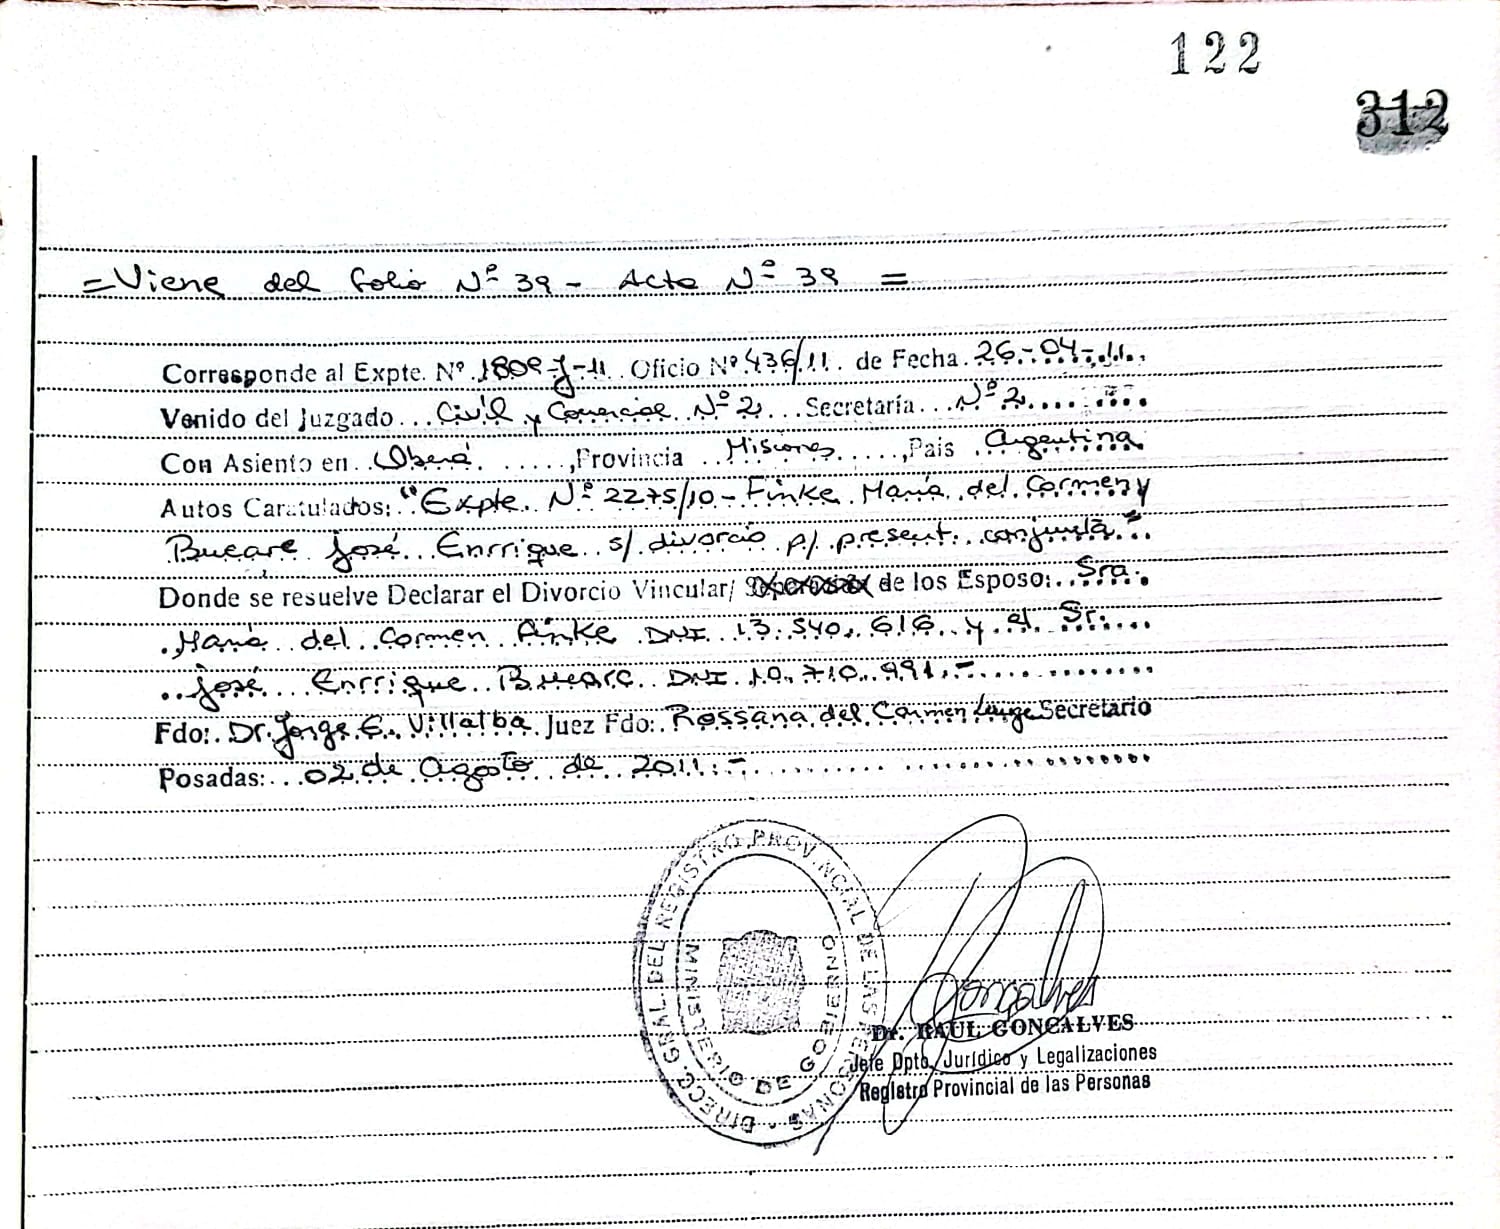 122
312
= Viene del folio Nº 39 - Acta Nº 39 =
Corresponde al Expte. Nº 1809-J-11 Oficio Nº 436/11. de Fecha 26-04-11.
Venido del Juzgado Civil y Comercial Nº 2 Secretaría Nº 2
Con Asiento en Oberá, Provincia Misiones, País Argentina
Autos Caratulados: "Expte. Nº 2275/10 - Finke María del Carmen y
José Enrrique s/ divorcio p/ present. conjunta"
Donde se resuelve Declarar el Divorcio Vincular/ de los Esposo: Sra.
María del Carmen Finke DNI 13.540.616 y el Sr.
José Enrrique DNI 10.710.991.-
Fdo: Dr. Jorge E. Villalba Juez Fdo: Rossana del Carmen Secretario
Posadas: 02 de Agosto de 2011.-
DIRECC. GRAL. DEL REGISTRO PROVINCIAL DE LAS PERSONAS
MINISTERIO DE GOBIERNO
Dr. RAUL GONCALVES
Jefe Dpto. Jurídico y Legalizaciones
Registro Provincial de las Personas